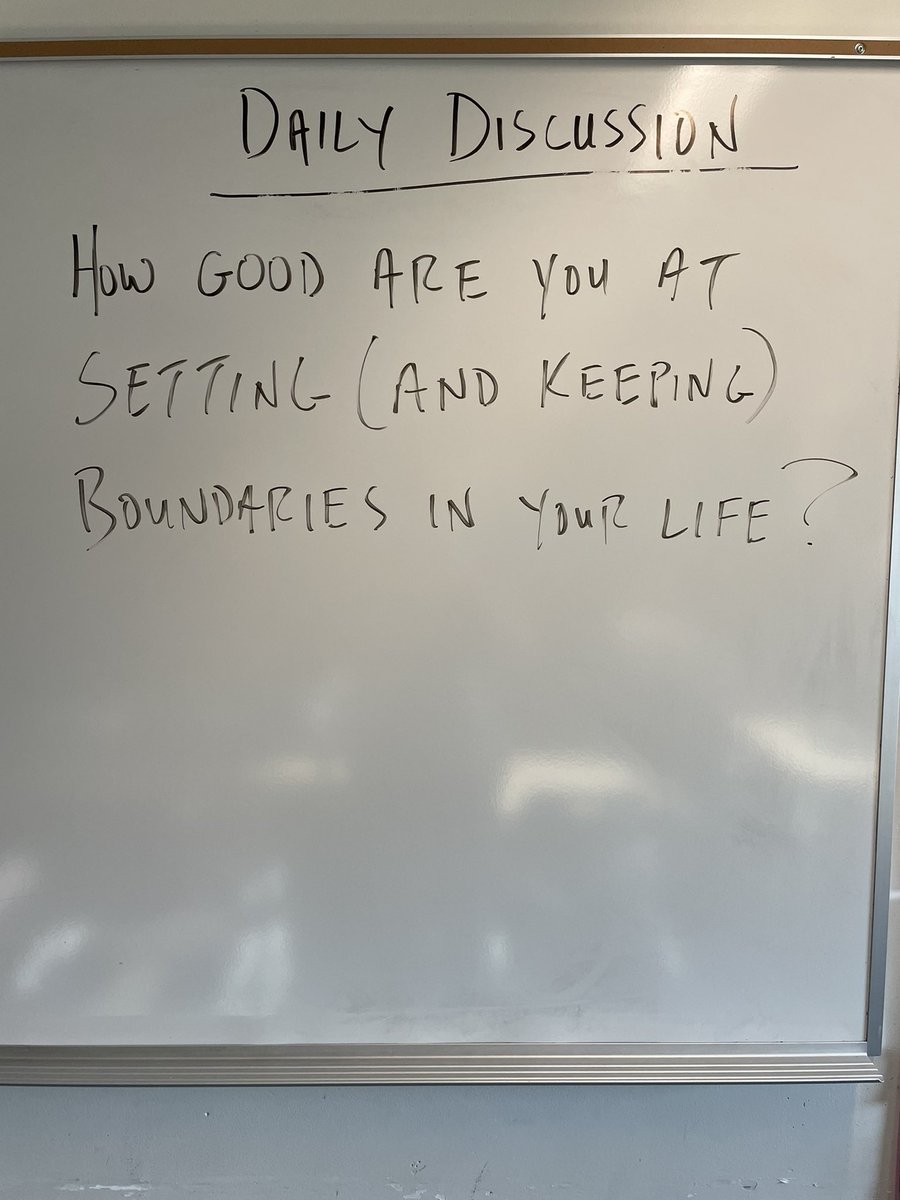 DAILY DISCUSSION
HOW GOOD ARE YOU AT
SETTING (AND KEEPING)
BOUNDARIES IN YOUR LIFE?